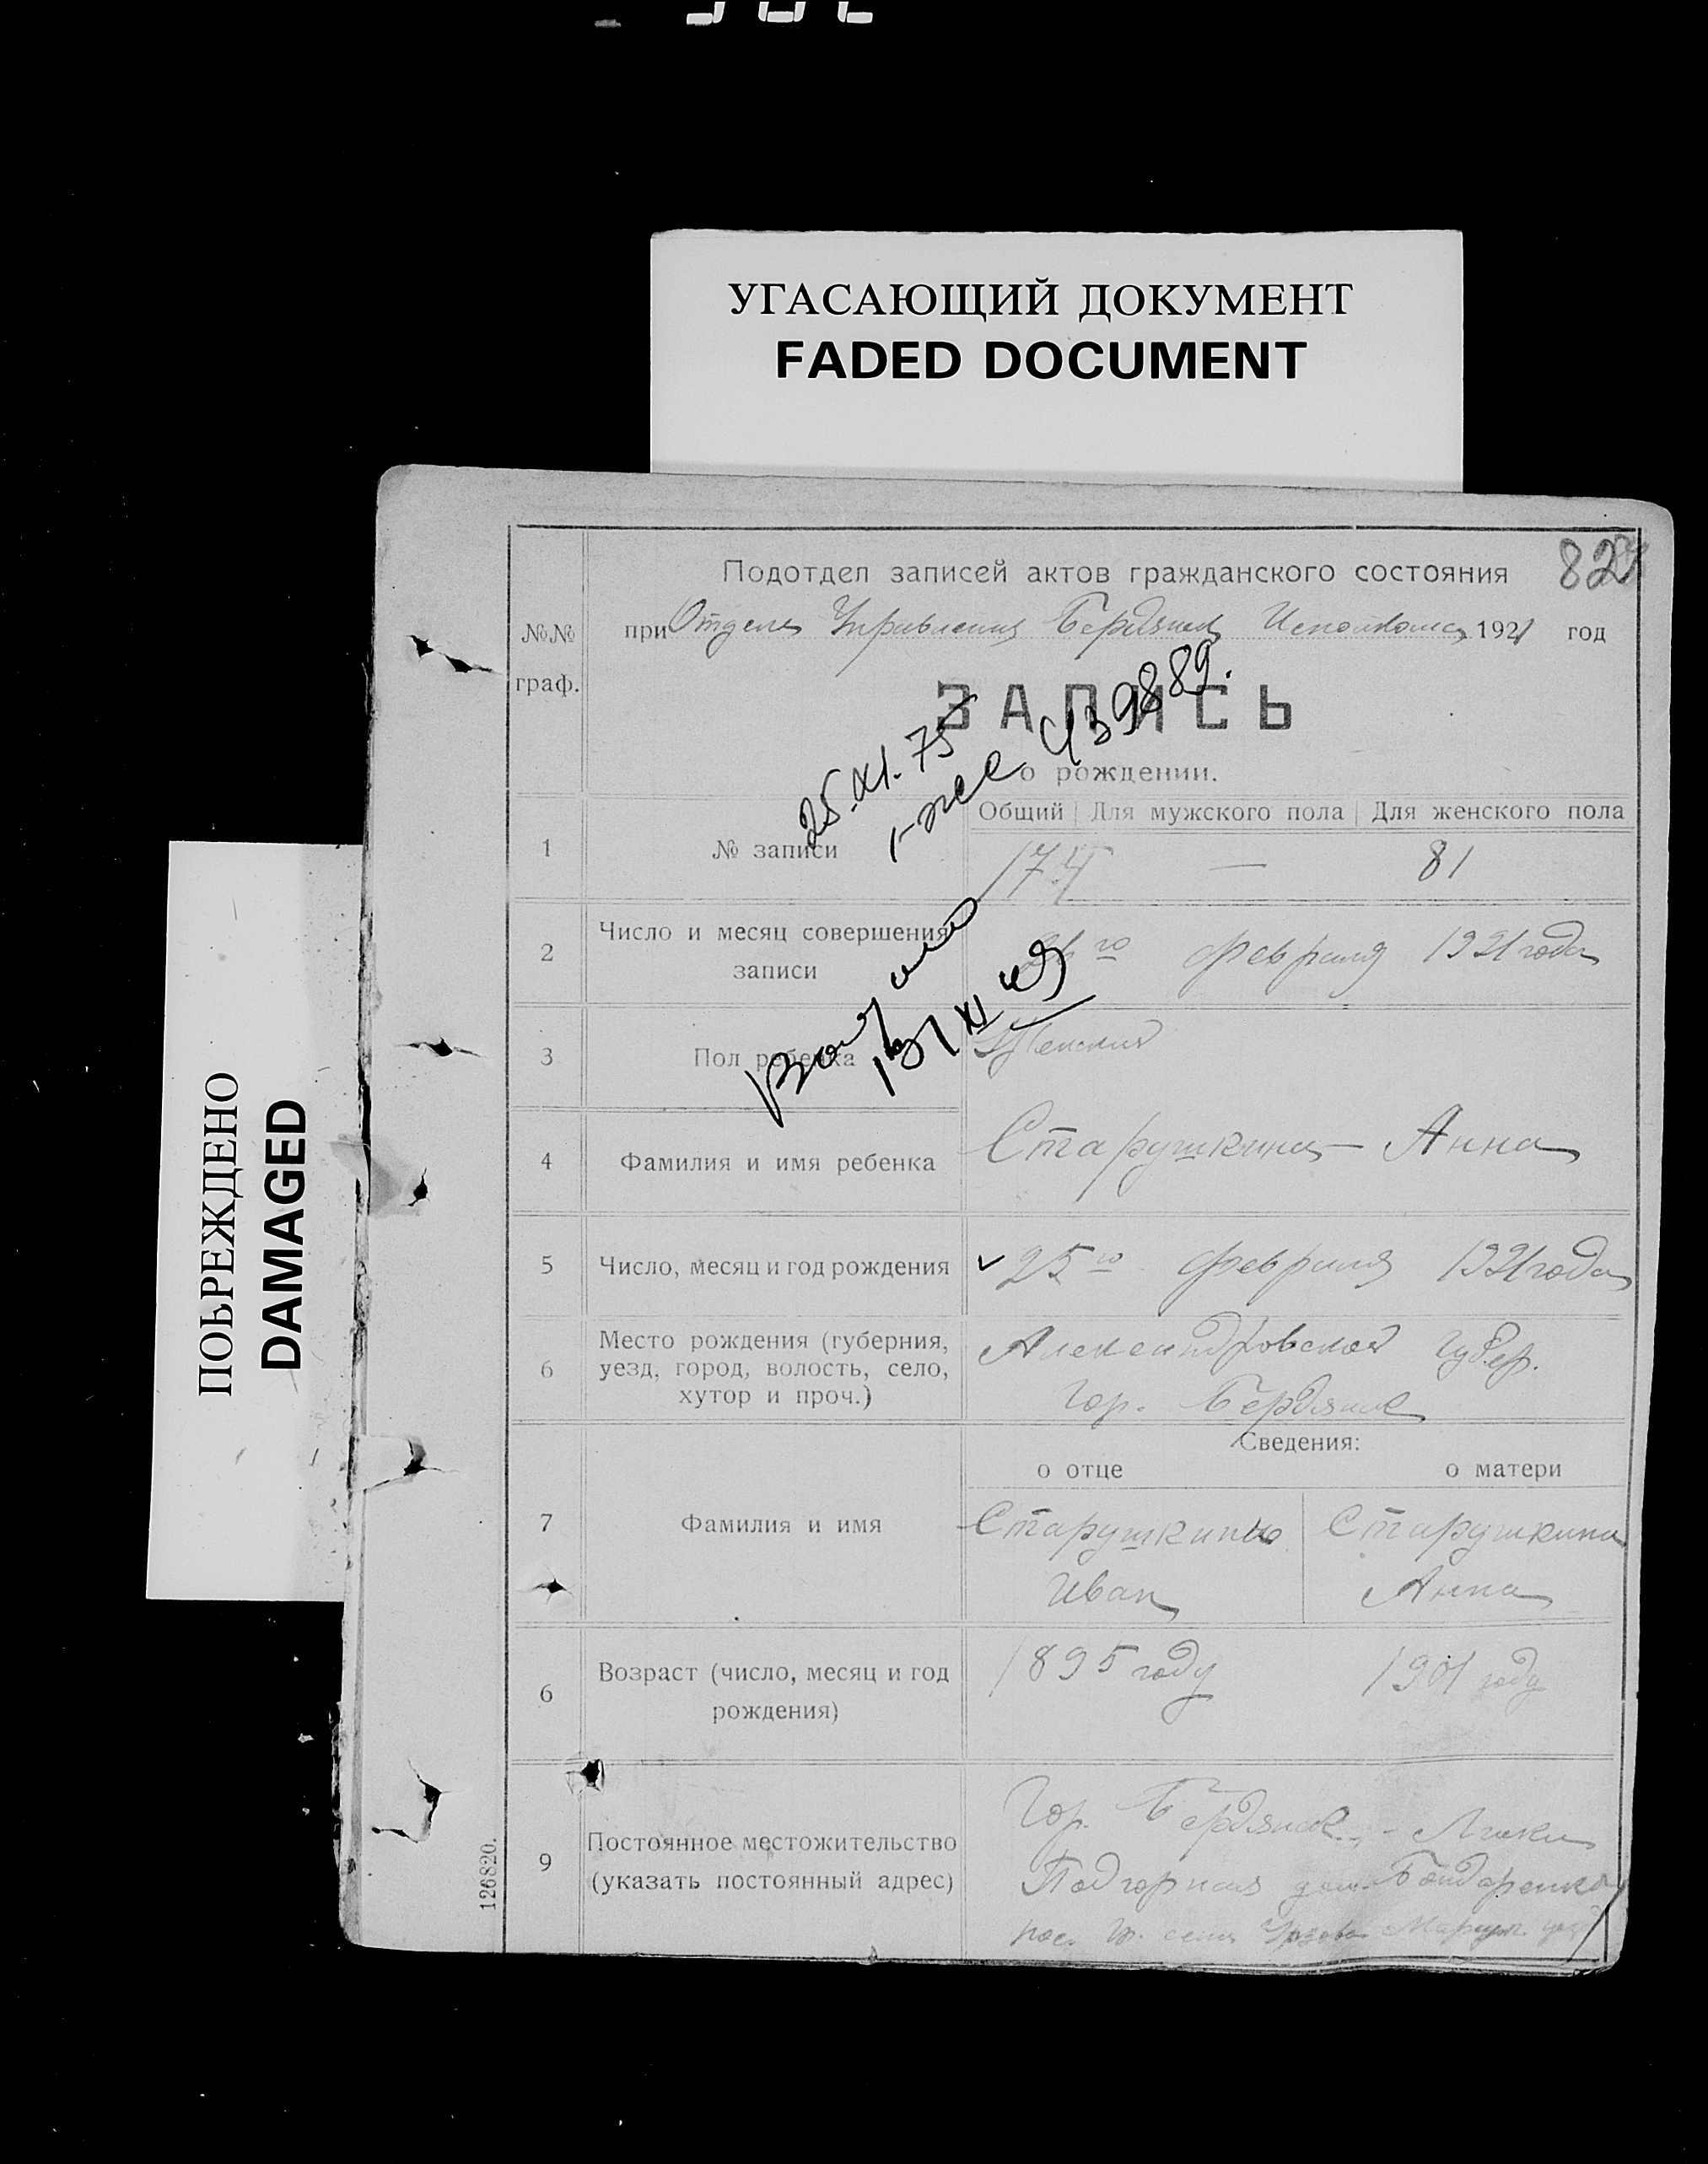 УГАСАЮЩИЙ ДОКУМЕНТ
FADED DOCUMENT
ПОЬРЕЖДЕНО
DAMAGED
82
Подотдел записей актов гражданского состояния
№№ граф.
при Отделе Управления Бердянск Исполкома 1921 год
ЗАПИСЬ
о рождении.
25.XI.75
439889.
Общий Для мужского пола Для женского пола
1 № записи 174 — 81
2 Число и месяц совершения записи 26го февраля 1921 года
3 Пол ребенка Женский
4 Фамилия и имя ребенка Старушкина Анна
5 Число, месяц и год рождения 25го февраля 1921 года
6 Место рождения (губерния, уезд, город, волость, село, хутор и проч.) Александровской губер.
гор. Бердянск
Сведения:
о отце о матери
7 Фамилия и имя Старушкин Старушкина
Иван Анна
6 Возраст (число, месяц и год рождения) 1895 году 1901 году
9 Постоянное местожительство (указать постоянный адрес) Гор. Бердянск, - Лиски
Подгорная дом Бондаренко
126820.